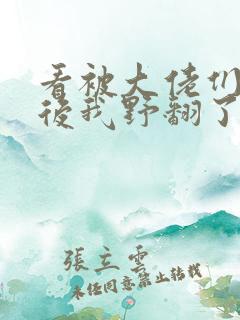 看被大佬们
後我野翻了
張立雲
未任同意禁止转载